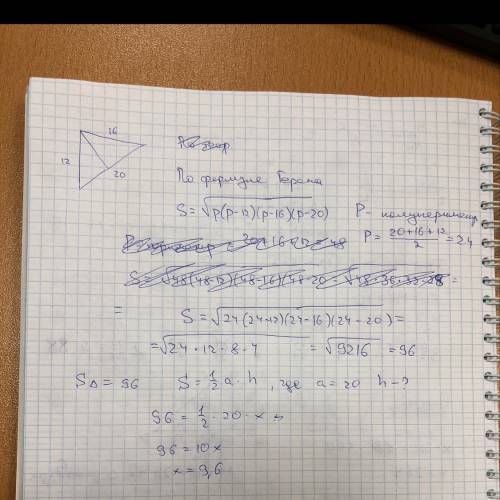 16
12
20
По формуле Герона
S=√p(p-12)(p-16)(p-20) P- полупериметр
P= 20+16+12/2 =24
= S=√24(24-12)(24-16)(24-20)=
=√24·12·8·4 =√9216 =96
S△=96 S=1/2 a·h, где a=20 h-?
96=1/2·20·x
96=10x
x=9,6